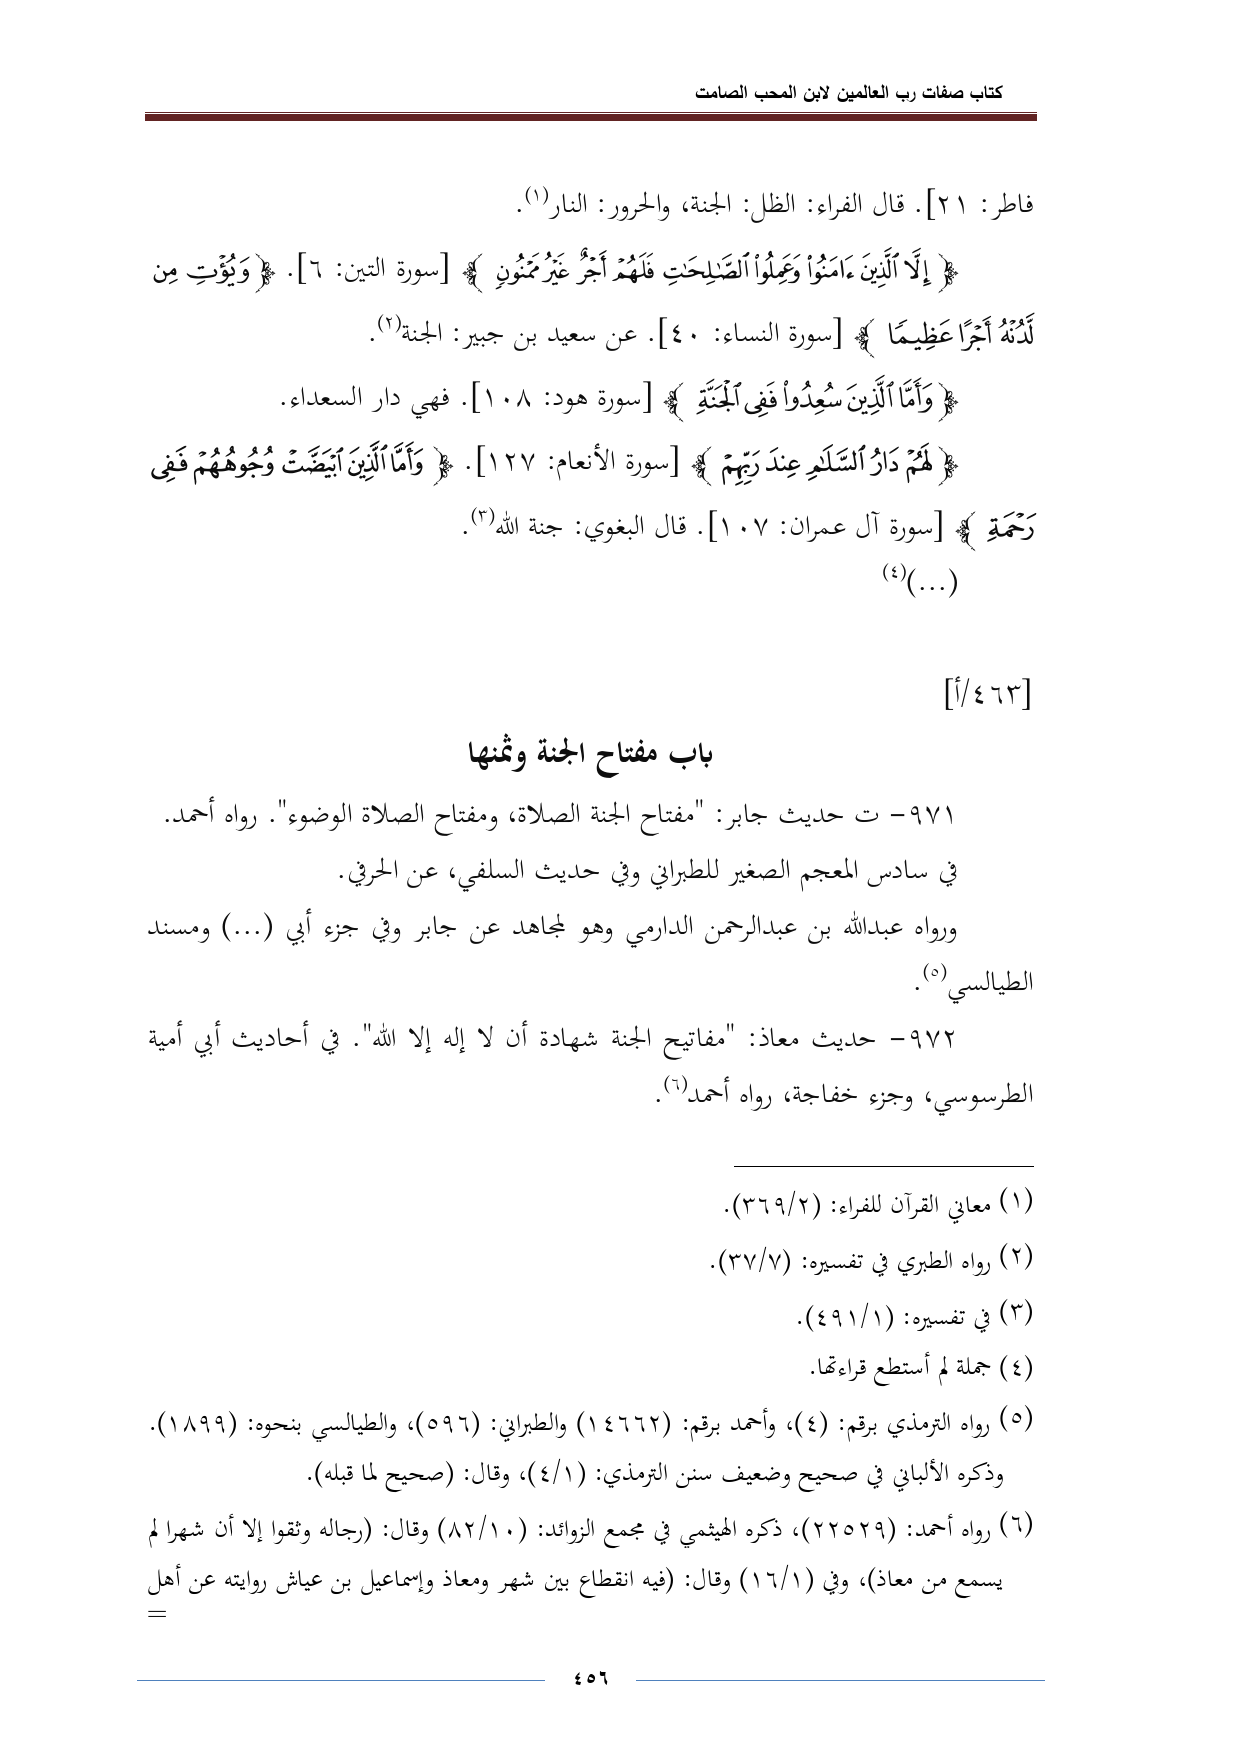 كتاب صفات رب العالمين لابن المحب الصامت
فاطر: ٢١]. قال الفراء: الظل: الجنة، والحرور: النار(١).
﴿ إِلَّا ٱلَّذِينَ ءَامَنُوا۟ وَعَمِلُوا۟ ٱلصَّـٰلِحَـٰتِ فَلَهُمْ أَجْرٌ غَيْرُ مَمْنُونٍ ﴾ [سورة التين: ٦]. ﴿ وَيُؤْتِ مِن
لَّدُنْهُ أَجْرًا عَظِيمًا ﴾ [سورة النساء: ٤٠]. عن سعيد بن جبير: الجنة(٢).
﴿ وَأَمَّا ٱلَّذِينَ سُعِدُوا۟ فَفِى ٱلْجَنَّةِ ﴾ [سورة هود: ١٠٨]. فهي دار السعداء.
﴿ لَهُمْ دَارُ ٱلسَّلَـٰمِ عِندَ رَبِّهِمْ ﴾ [سورة الأنعام: ١٢٧]. ﴿ وَأَمَّا ٱلَّذِينَ ٱبْيَضَّتْ وُجُوهُهُمْ فَفِى
رَحْمَةِ ﴾ [سورة آل عمران: ١٠٧]. قال البغوي: جنة الله(٣).
(...)(٤)
[٤٦٣/أ]
باب مفتاح الجنة وثمنها
٩٧١- ت حديث جابر: "مفتاح الجنة الصلاة، ومفتاح الصلاة الوضوء". رواه أحمد.
في سادس المعجم الصغير للطبراني وفي حديث السلفي، عن الحرفي.
ورواه عبدالله بن عبدالرحمن الدارمي وهو لمجاهد عن جابر وفي جزء أبي (...) ومسند
الطيالسي(٥).
٩٧٢- حديث معاذ: "مفاتيح الجنة شهادة أن لا إله إلا الله". في أحاديث أبي أمية
الطرسوسي، وجزء خفاجة، رواه أحمد(٦).
(١) معاني القرآن للفراء: (٣٦٩/٢).
(٢) رواه الطبري في تفسيره: (٣٧/٧).
(٣) في تفسيره: (٤٩١/١).
(٤) جملة لم أستطع قراءتها.
(٥) رواه الترمذي برقم: (٤)، وأحمد برقم: (١٤٦٦٢) والطبراني: (٥٩٦)، والطيالسي بنحوه: (١٨٩٩).
وذكره الألباني في صحيح وضعيف سنن الترمذي: (٤/١)، وقال: (صحيح لما قبله).
(٦) رواه أحمد: (٢٢٥٢٩)، ذكره الهيثمي في مجمع الزوائد: (٨٢/١٠) وقال: (رجاله وثقوا إلا أن شهرا لم
يسمع من معاذ)، وفي (١٦/١) وقال: (فيه انقطاع بين شهر ومعاذ وإسماعيل بن عياش روايته عن أهل
=
٤٥٦